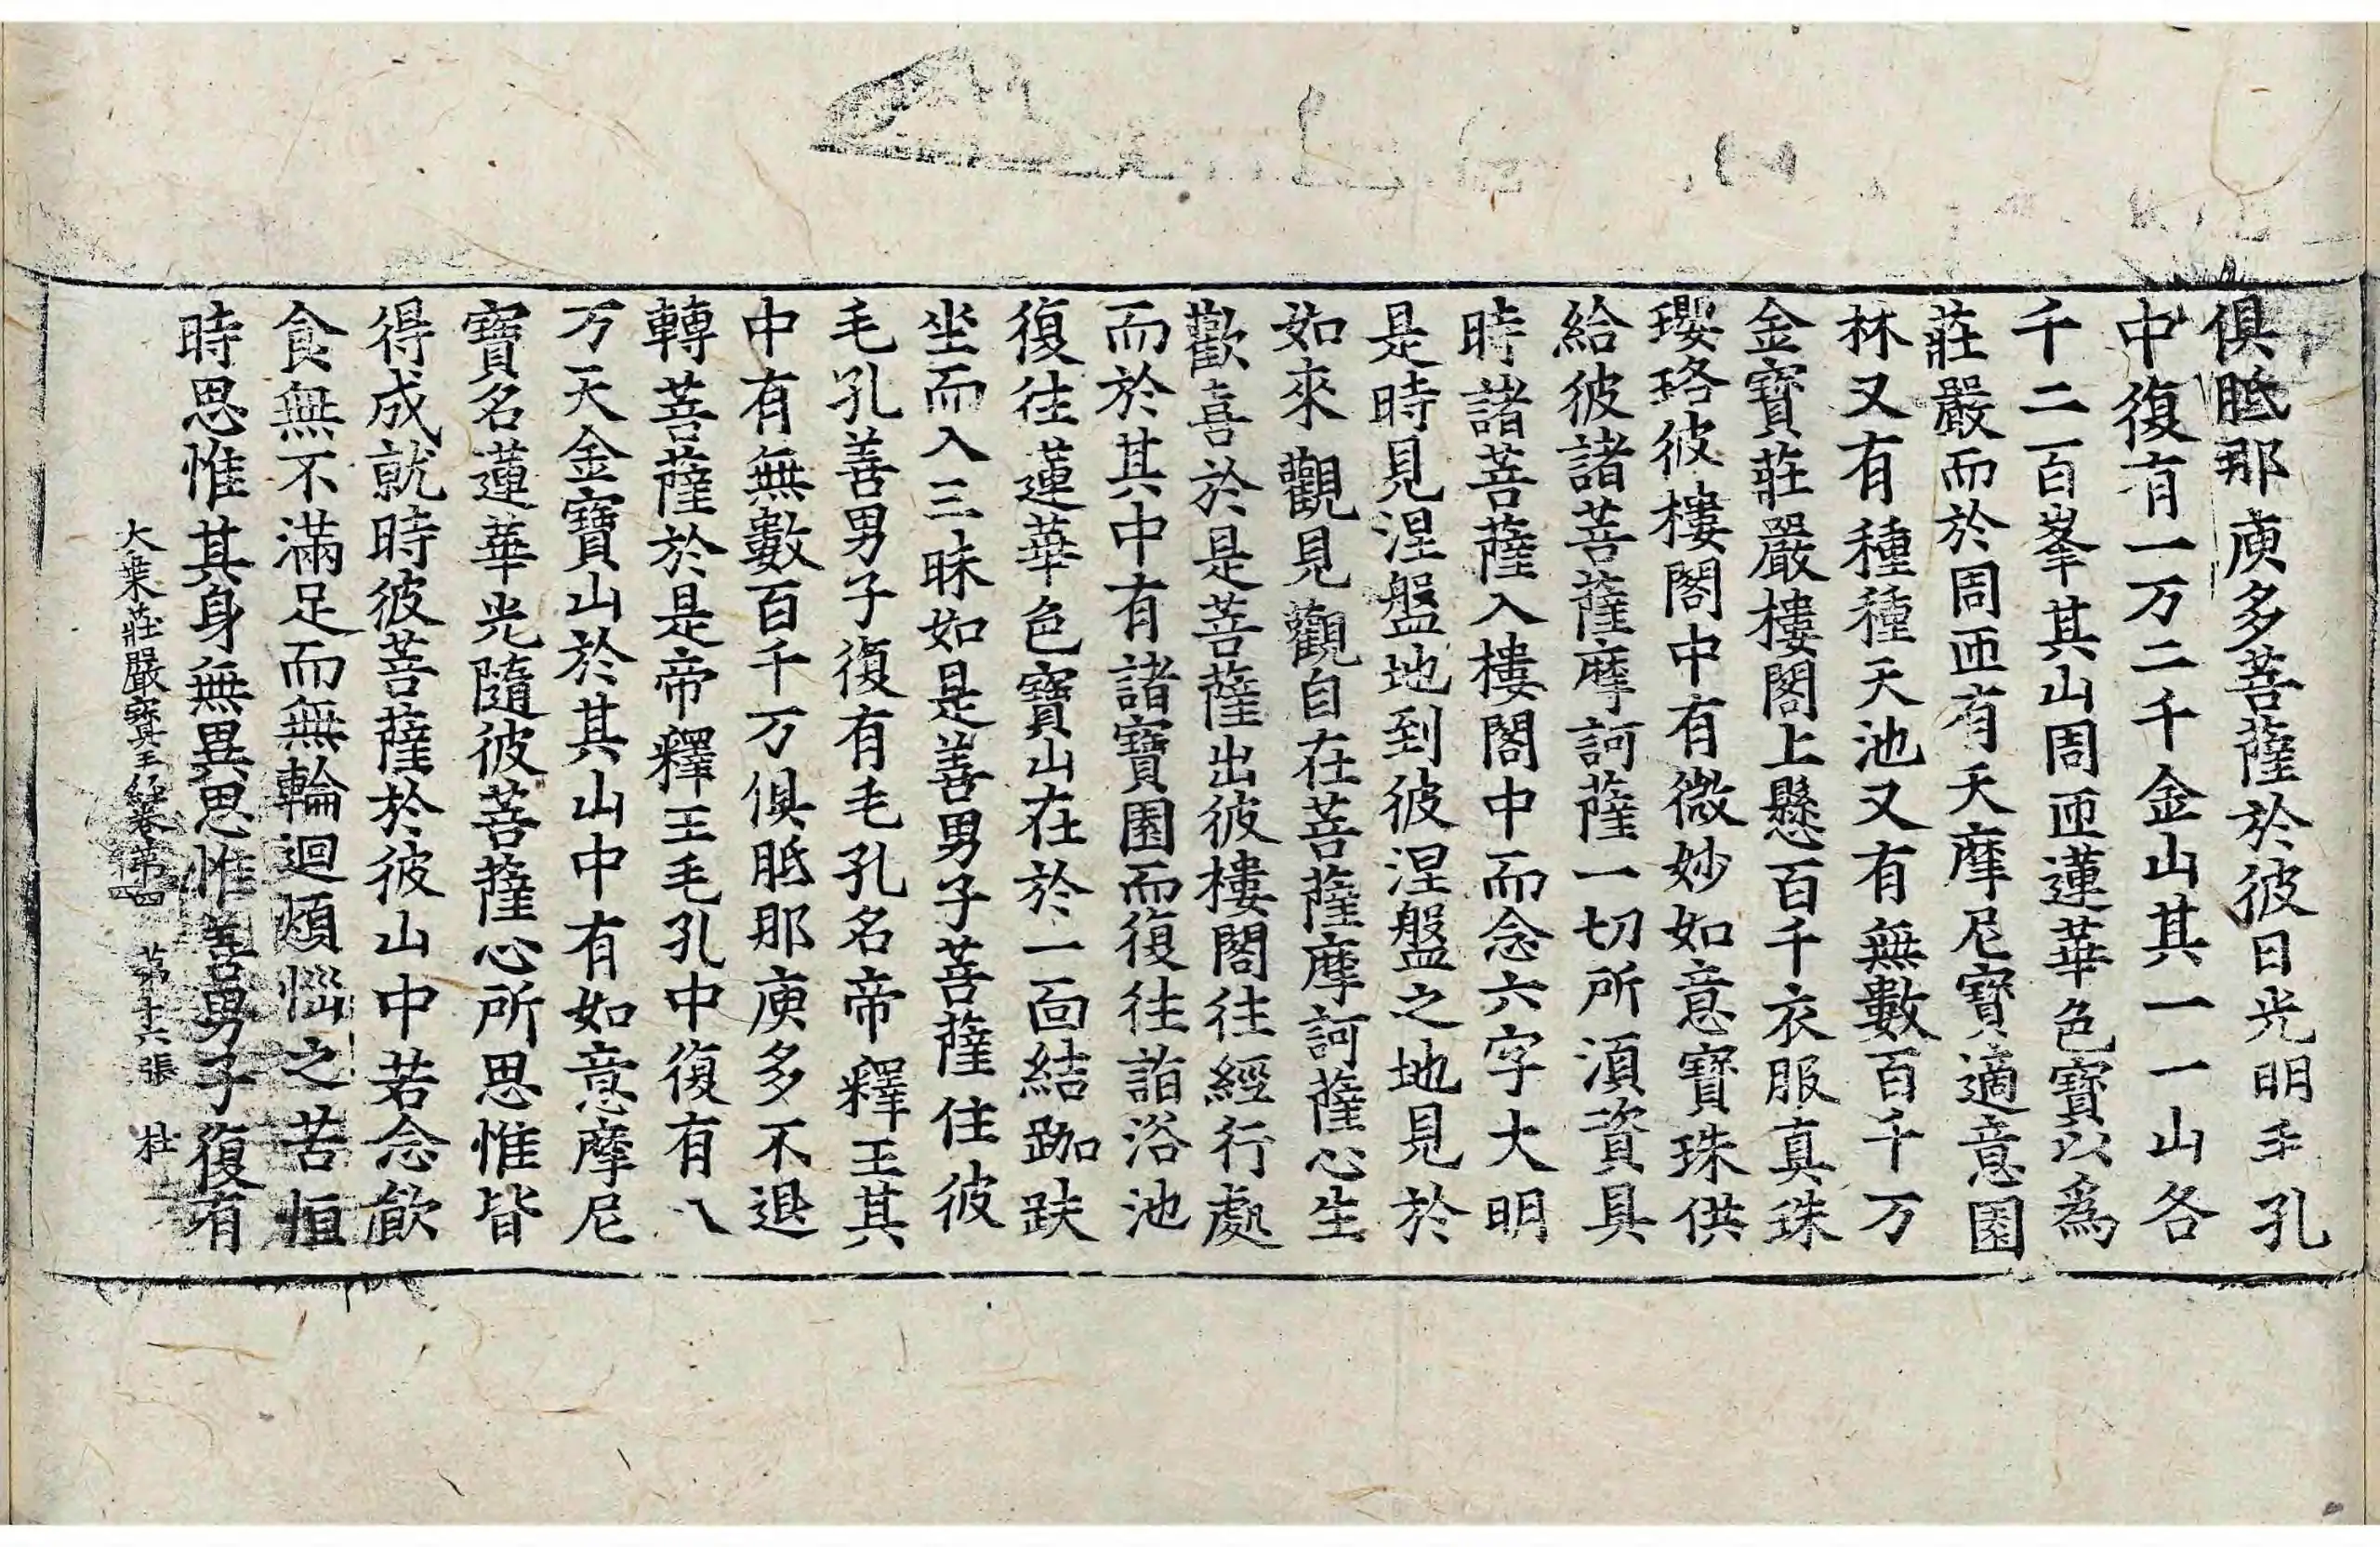 俱胝那庾多菩薩於彼日光明毛孔
中復有一万二千金山其一一山各
千二百峯其山周匝蓮華色寶以爲
莊嚴而於周匝有天摩尼寶適意園
林又有種種天池又有無數百千万
金寶莊嚴樓閣上懸百千衣服真珠
瓔珞彼樓閣中有微妙如意寶珠供
給彼諸菩薩摩訶薩一切所湏資具
時諸菩薩入樓閣中而念六字大明
是時見涅盤地到彼涅盤之地見於
如來觀見觀自在菩薩摩訶薩心生
歡喜於是菩薩出彼樓閣往經行處
而於其中有諸寶園而復往詣浴池
復往蓮華色寶山在於一面結跏趺
坐而入三昧如是善男子菩薩住彼
毛孔善男子復有毛孔名帝釋王其
中有無數百千万俱胝那庾多不退
轉菩薩於是帝釋王毛孔中復有八
万天金寶山於其山中有如意摩尼
寶名蓮華光隨彼菩薩心所思惟皆
得成就時彼菩薩於彼山中若念飲
食無不滿足而無輪迴煩惱之苦恒
時思惟其身無異思惟善男子復有
大乗莊嚴寶王經卷第四 第十六張 杜